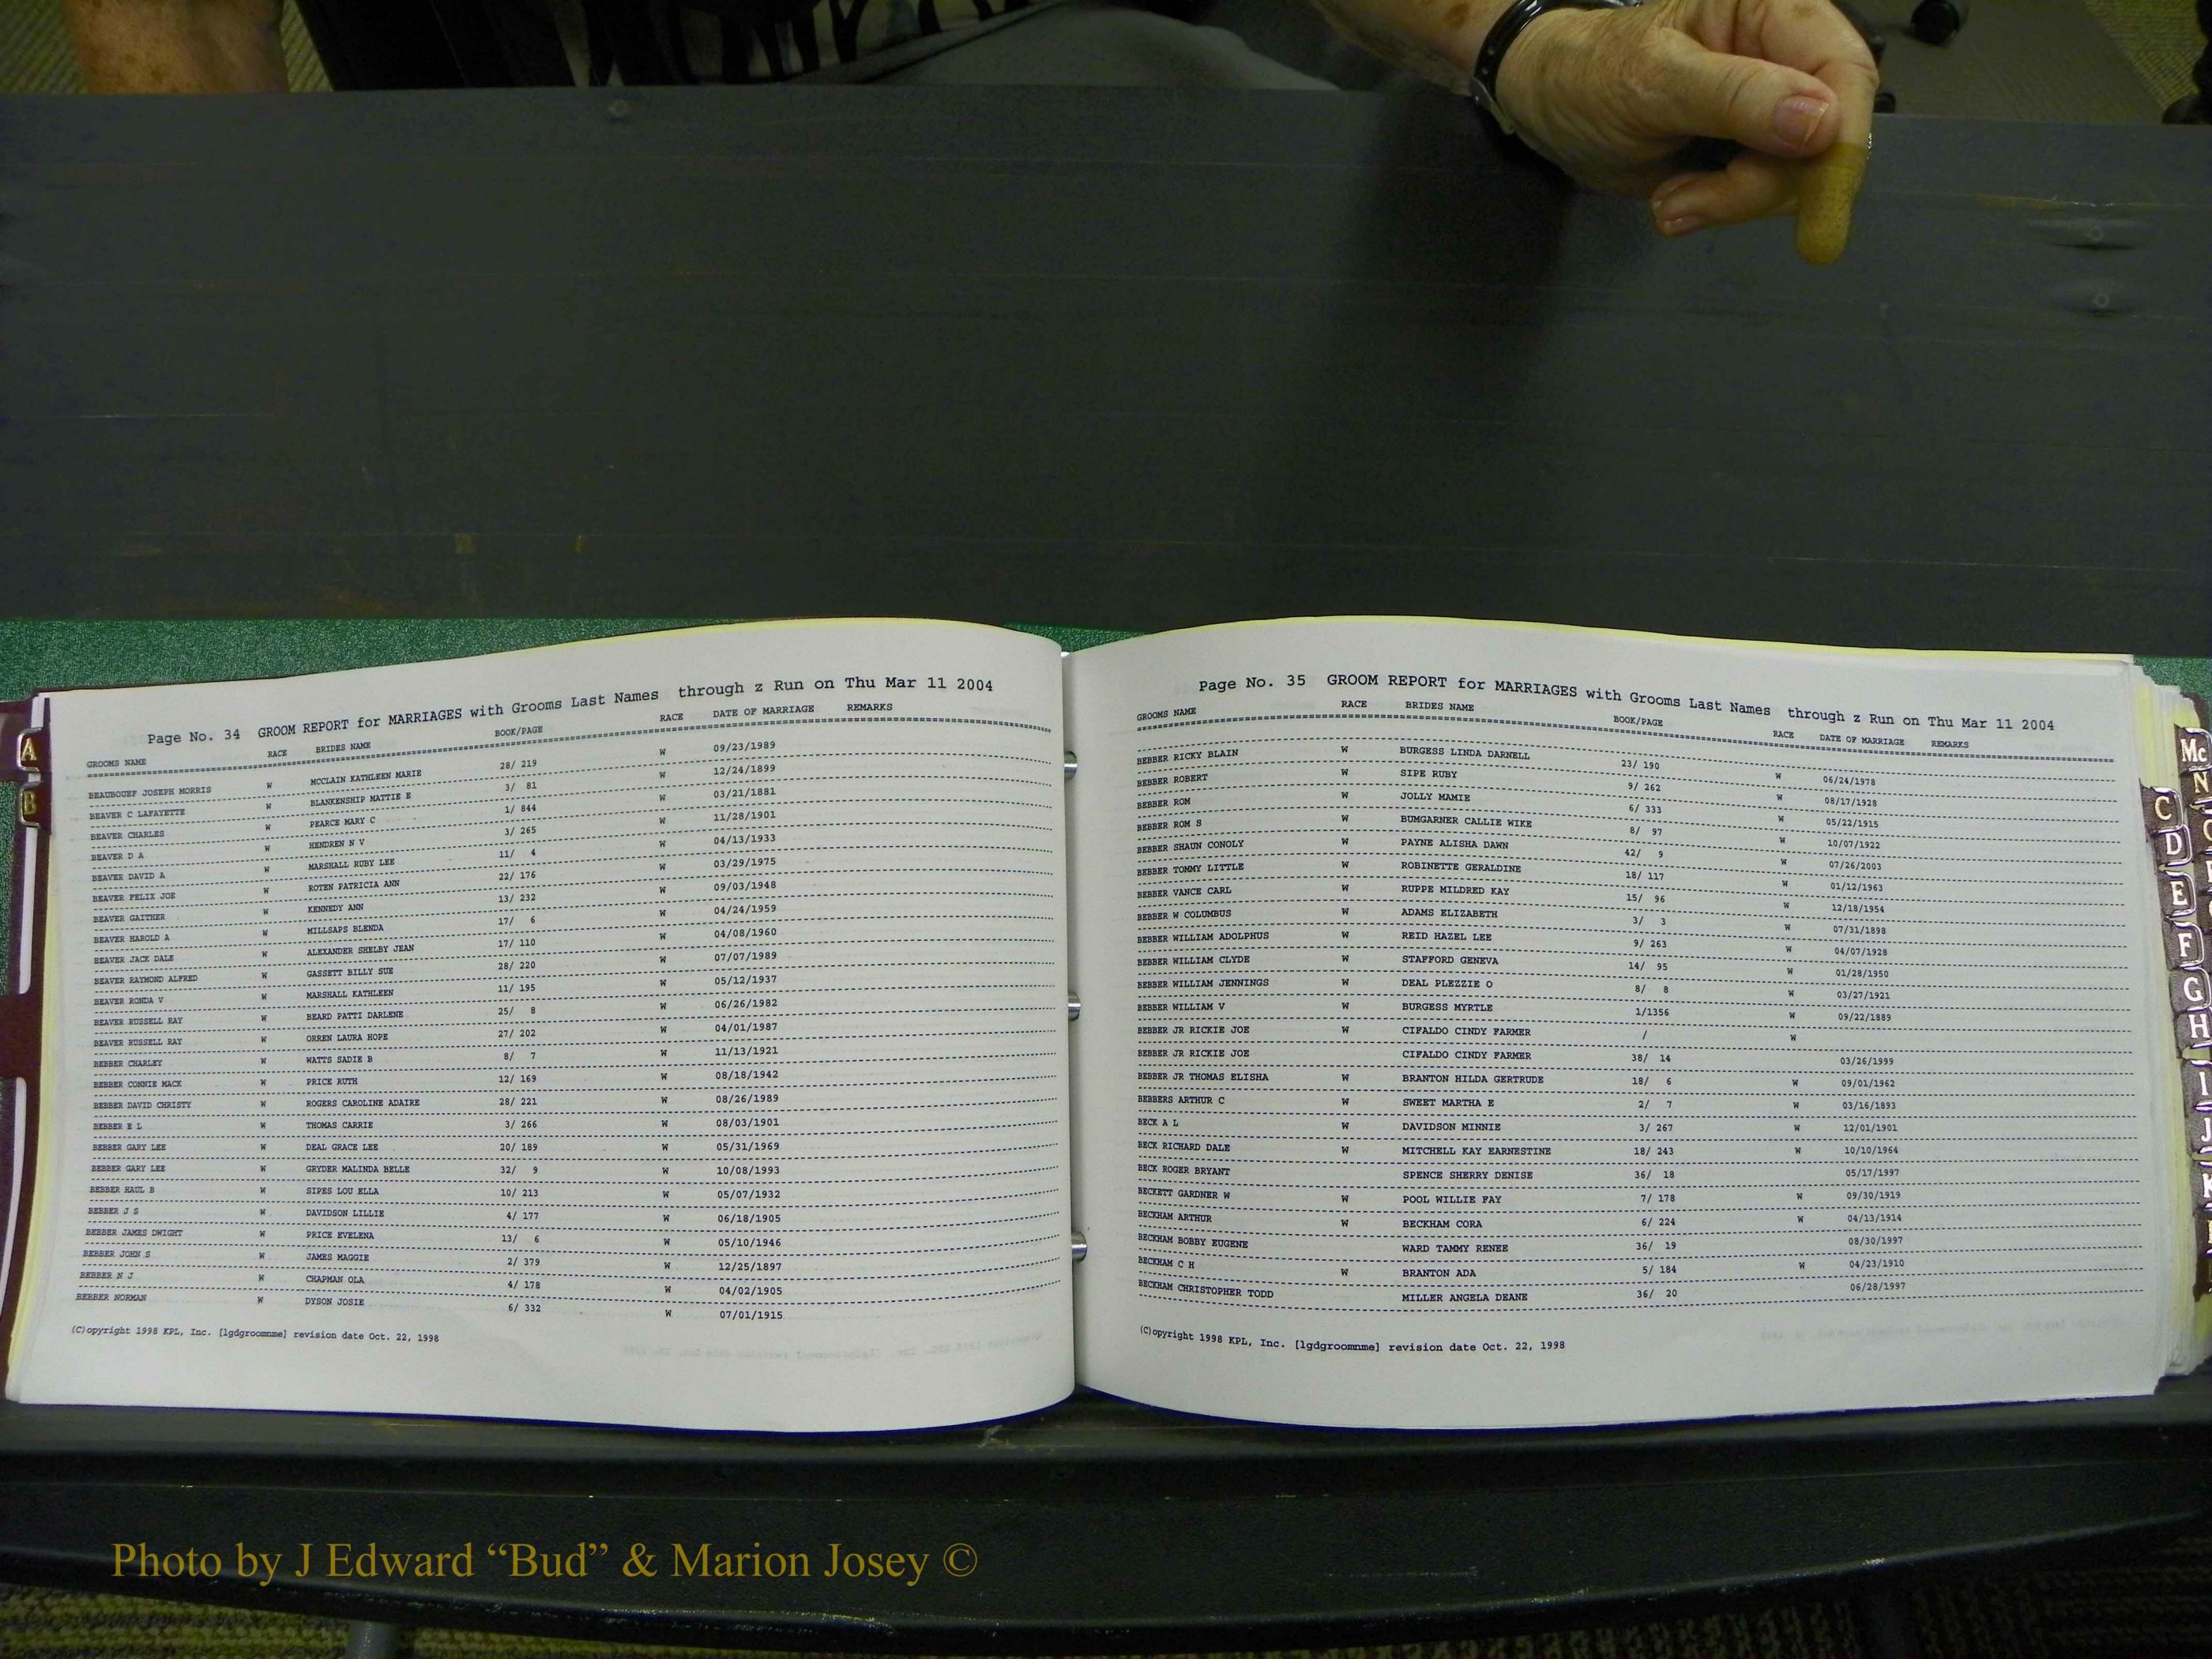 Page No. 34 GROOM REPORT for MARRIAGES with Grooms Last Names through z Run on Thu Mar 11 2004
GROOMS NAME RACE BRIDES NAME BOOK/PAGE RACE DATE OF MARRIAGE REMARKS
BEAUBOUEF JOSEPH MORRIS W MCCLAIN KATHLEEN MARIE 28/ 219 W 09/23/1989
BEAVER C LAFAYETTE W BLANKENSHIP MATTIE E 3/ 81 W 12/24/1899
BEAVER CHARLES W PEARCE MARY C 1/ 844 W 03/21/1881
BEAVER D A W HENDREN N V 3/ 265 W 11/28/1901
BEAVER DAVID A W MARSHALL RUBY LEE 11/ 4 W 04/13/1933
BEAVER FELIX JOE W ROTEN PATRICIA ANN 22/ 176 W 03/29/1975
BEAVER GAITHER W KENNEDY ANN 13/ 232 W 09/03/1948
BEAVER HAROLD A W MILLSAPS BLENDA 17/ 6 W 04/24/1959
BEAVER JACK DALE W ALEXANDER SHELBY JEAN 17/ 110 W 04/08/1960
BEAVER RAYMOND ALFRED W GASSETT BILLY SUE 28/ 220 W 07/07/1989
BEAVER RONDA V W MARSHALL KATHLEEN 11/ 195 W 05/12/1937
BEAVER RUSSELL RAY W BEARD PATTI DARLENE 25/ 8 W 06/26/1982
BEAVER RUSSELL RAY W ORREN LAURA HOPE 27/ 202 W 04/01/1987
BEBBER CHARLEY W WATTS SADIE B 8/ 7 W 11/13/1921
BEBBER CONNIE MACK W PRICE RUTH 12/ 169 W 08/18/1942
BEBBER DAVID CHRISTY W ROGERS CAROLINE ADAIRE 28/ 221 W 08/26/1989
BEBBER E L W THOMAS CARRIE 3/ 266 W 08/03/1901
BEBBER GARY LEE W DEAL GRACE LEE 20/ 189 W 05/31/1969
BEBBER GARY LEE W GRYDER MALINDA BELLE 32/ 9 W 10/08/1993
BEBBER HAUL B W SIPES LOU ELLA 10/ 213 W 05/07/1932
BEBBER J S W DAVIDSON LILLIE 4/ 177 W 06/18/1905
BEBBER JAMES DWIGHT W PRICE EVELENA 13/ 6 W 05/10/1946
BEBBER JOHN S W JAMES MAGGIE 2/ 379 W 12/25/1897
BEBBER N J W CHAPMAN OLA 4/ 178 W 04/02/1905
BEBBER NORMAN W DYSON JOSIE 6/ 332 W 07/01/1915
(C)opyright 1998 KPL, Inc. [lgdgroomnme] revision date Oct. 22, 1998
Page No. 35 GROOM REPORT for MARRIAGES with Grooms Last Names through z Run on Thu Mar 11 2004
GROOMS NAME RACE BRIDES NAME BOOK/PAGE RACE DATE OF MARRIAGE REMARKS
BEBBER RICKY BLAIN W BURGESS LINDA DARNELL 23/ 190 W 06/24/1978
BEBBER ROBERT W SIPE RUBY 9/ 262 W 08/17/1928
BEBBER ROM W JOLLY MAMIE 6/ 333 W 05/22/1915
BEBBER ROM S W BUMGARNER CALLIE WIKE 8/ 97 W 10/07/1922
BEBBER SHAUN CONOLY W PAYNE ALISHA DAWN 42/ 9 W 07/26/2003
BEBBER TOMMY LITTLE W ROBINETTE GERALDINE 18/ 117 W 01/12/1963
BEBBER VANCE CARL W RUPPE MILDRED KAY 15/ 96 W 12/18/1954
BEBBER W COLUMBUS W ADAMS ELIZABETH 3/ 3 W 07/31/1898
BEBBER WILLIAM ADOLPHUS W REID HAZEL LEE 9/ 263 W 04/07/1928
BEBBER WILLIAM CLYDE W STAFFORD GENEVA 14/ 95 W 01/28/1950
BEBBER WILLIAM JENNINGS W DEAL PLEZZIE O 8/ 8 W 03/27/1921
BEBBER WILLIAM V W BURGESS MYRTLE 1/1356 W 09/22/1889
BEBBER JR RICKIE JOE W CIFALDO CINDY FARMER / W
BEBBER JR RICKIE JOE CIFALDO CINDY FARMER 38/ 14 03/26/1999
BEBBER JR THOMAS ELISHA W BRANTON HILDA GERTRUDE 18/ 6 W 09/01/1962
BEBBERS ARTHUR C W SWEET MARTHA E 2/ 7 W 03/16/1893
BECK A L W DAVIDSON MINNIE 3/ 267 W 12/01/1901
BECK RICHARD DALE W MITCHELL KAY EARNESTINE 18/ 243 W 10/10/1964
BECK ROGER BRYANT SPENCE SHERRY DENISE 36/ 18 05/17/1997
BECKETT GARDNER W W POOL WILLIE FAY 7/ 178 W 09/30/1919
BECKHAM ARTHUR W BECKHAM CORA 6/ 224 W 04/13/1914
BECKHAM BOBBY EUGENE WARD TAMMY RENEE 36/ 19 08/30/1997
BECKHAM C H W BRANTON ADA 5/ 184 W 04/23/1910
BECKHAM CHRISTOPHER TODD MILLER ANGELA DEANE 36/ 20 06/28/1997
(C)opyright 1998 KPL, Inc. [lgdgroomnme] revision date Oct. 22, 1998
A
B
C
D
E
F
G
H
I
J
K
Mc
N
Photo by J Edward “Bud” & Marion Josey ©